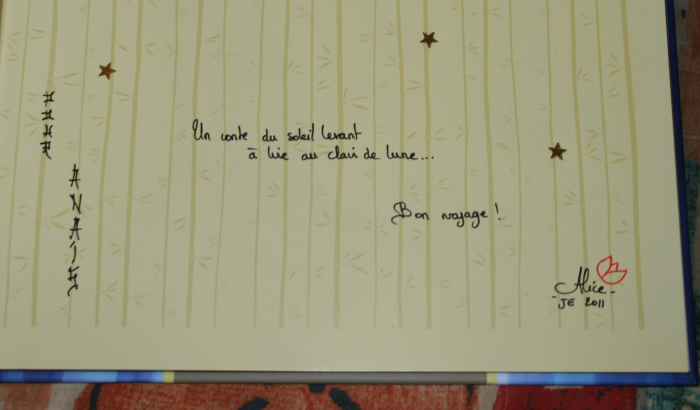 ANAÏS
Un conte du soleil levant
à lire au clair de lune...
Bon voyage !
Alice
- JE 2011 -